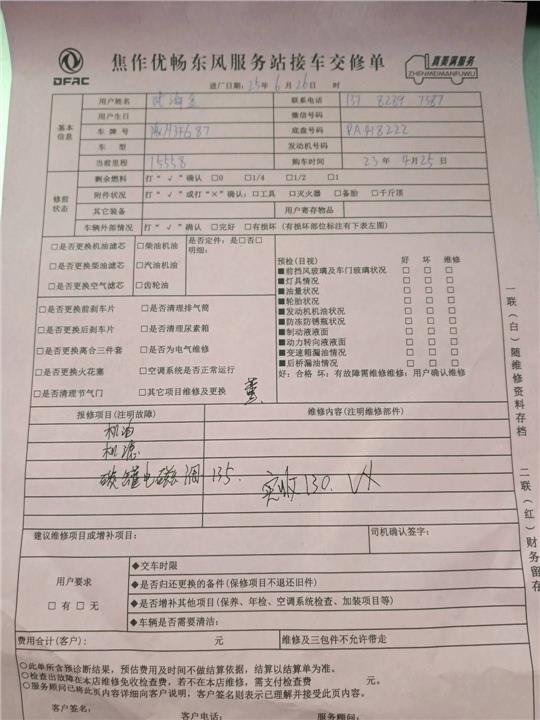 DFAC
焦作优畅东风服务站接车交修单
真美满服务
ZHENMEIMANFUWU
进厂日期：25年6月26日 时
基本信息
用户姓名 联系电话 137 8239 7387
用户生日 微信号码
车牌号 底盘号码 RA418222
车型 发动机号码
当前里程 15558 购车时间 23年4月25日
修前状态
剩余燃料 打“√”确认 □0 □1/4 □1/2 □1
附件状况 打“√”或打“×”确认：□工具 □灭火器 □备胎 □千斤顶
其它装备 用户寄存物品
车辆外部情况 打“√”确认 □完好 □有损坏（有损坏部位标注有下表左图）
□是否更换机油滤芯 □柴油机油 是否定件：是□否□
明细：
□是否更换柴油滤芯 □汽油机油
□是否更换空气滤芯 □齿轮油
预检(目视) 好 坏 维修
■前挡风玻璃及车门玻璃状况 □ □ □
■灯具情况 □ □ □
■油量状况 □ □ □
■轮胎状况 □ □ □
■发动机机油状况 □ □ □
■防冻防锈瓶状况 □ □ □
■制动液液面 □ □ □
■动力转向液液面 □ □ □
■变速箱漏油情况 □ □ □
■后桥漏油情况 □ □ □
好：合格 坏：有故障需维修维修：用户确认维修
□是否更换前刹车片 □是否清理排气筒
□是否更换后刹车片 □是否清理尿素箱
□是否更换离合三件套 □是否为电气维修
□是否更换火花塞 □空调系统是否正常运行
□是否清理节气门 □其它项目维修及更换
报修项目(注明故障) 维修内容(注明维修部件)
机油
机滤
碳罐电磁阀 135.
实收130. VX
建议维修项目或增补项目： 司机确认签字：
用户要求
□有 □无
◆交车时限
◆是否归还更换的备件(保修项目不退还旧件)
◆是否增补其他项目(保养、年检、空调系统检查、加装项目等)
◆车辆是否需要清洁：
费用合计(客户)： 元 维修及三包件不允许带走
○此单所含预诊断结果，预估费用及时间不做结算依据，结算以结算单为准。
○检查出故障在本店维修免收检查费，若不在本店维修，需支付检查费 元。
○服务顾问已将此页内容详细向客户说明，客户签名则表示已理解并接受此页内容。
客户签名： 客户电话： 服务顾问：
一联（白）随维修资料存档
二联（红）财务留存